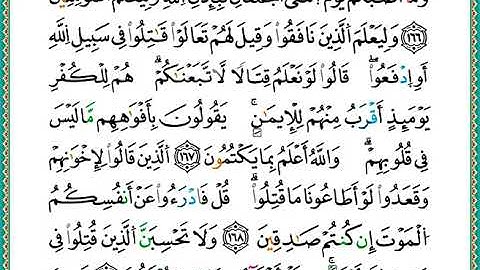 وَلِيَعْلَمَ ٱلَّذِينَ نَافَقُوا۟ وَقِيلَ لَهُمْ تَعَالَوْا۟ قَٰتِلُوا۟ فِى سَبِيلِ ٱللَّهِ
أَوِ ٱدْفَعُوا۟ ۖ قَالُوا۟ لَوْ نَعْلَمُ قِتَالًا لَّٱتَّبَعْنَٰكُمْ ۗ هُمْ لِلْكُفْرِ
يَوْمَئِذٍ أَقْرَبُ مِنْهُمْ لِلْإِيمَٰنِ ۚ يَقُولُونَ بِأَفْوَٰهِهِم مَّا لَيْسَ
فِى قُلُوبِهِمْ ۗ وَٱللَّهُ أَعْلَمُ بِمَا يَكْتُمُونَ ١٦٧ ٱلَّذِينَ قَالُوا۟ لِإِخْوَٰنِهِمْ
وَقَعَدُوا۟ لَوْ أَطَاعُونَا مَا قُتِلُوا۟ ۗ قُلْ فَٱدْرَءُوا۟ عَنْ أَنفُسِكُمُ
ٱلْمَوْتَ إِن كُنتُمْ صَٰدِقِينَ ١٦٨ وَلَا تَحْسَبَنَّ ٱلَّذِينَ قُتِلُوا۟ فِى